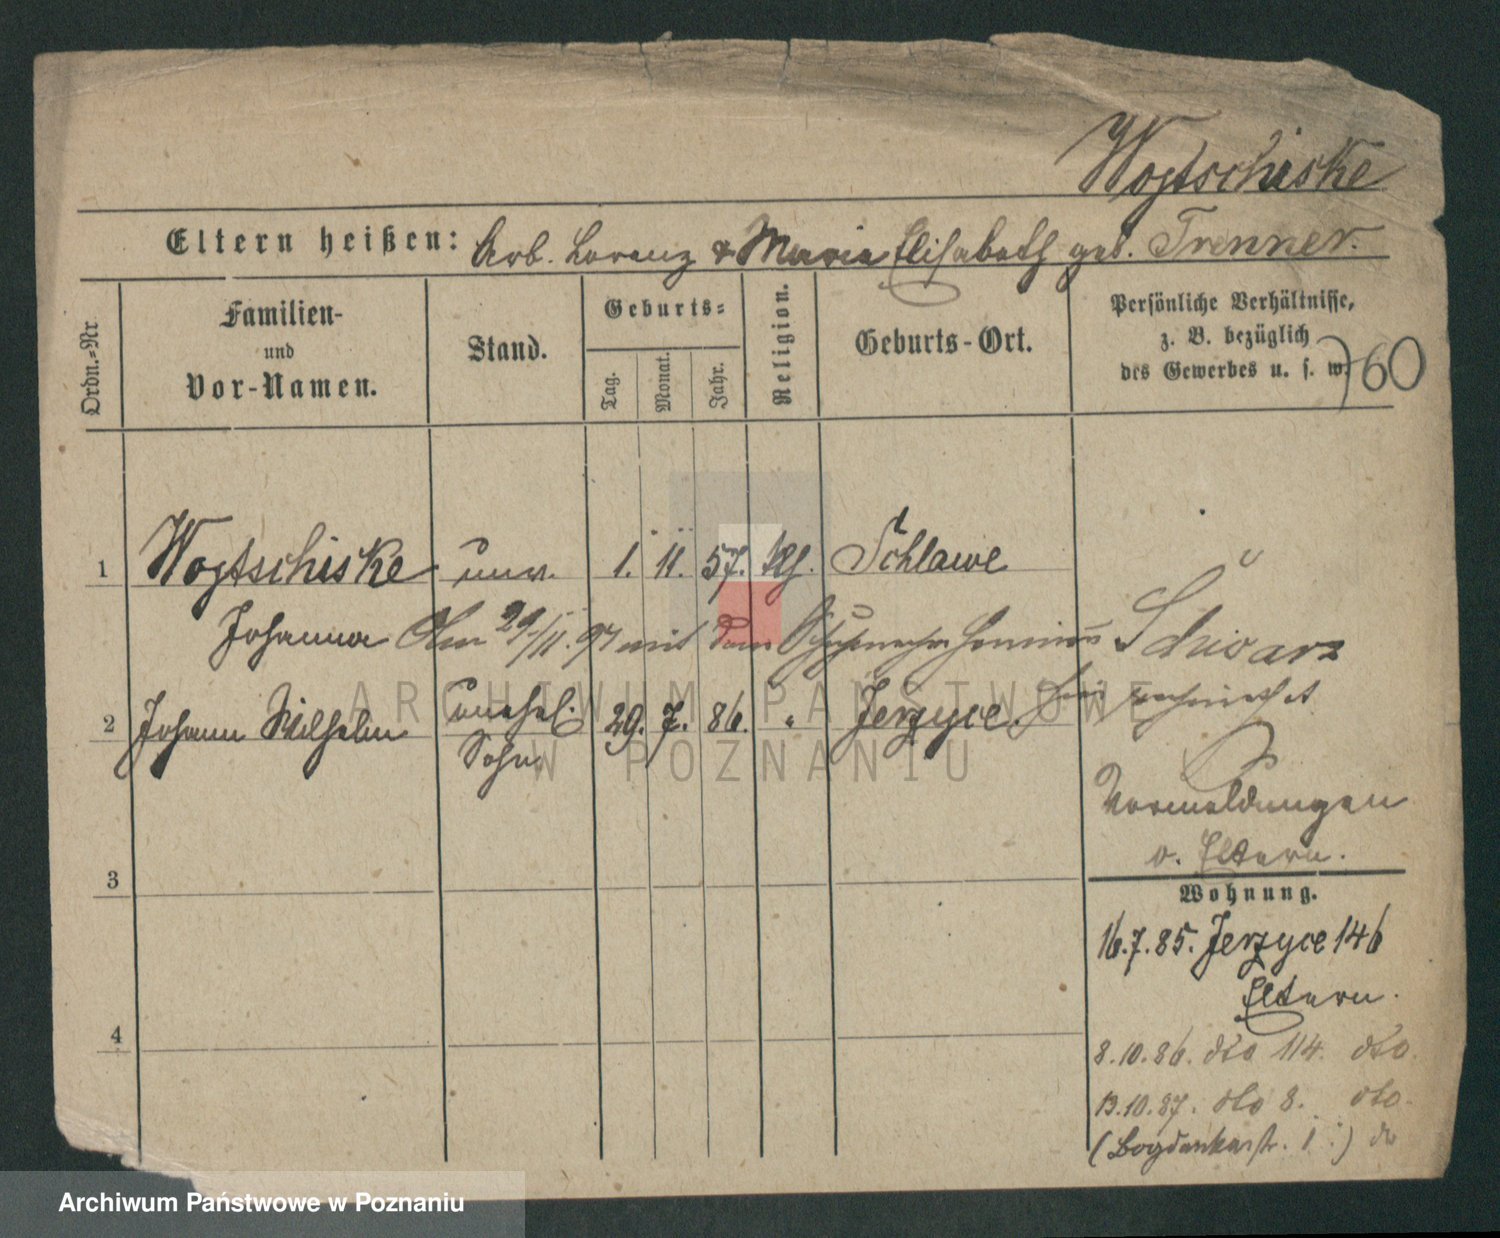 Wogtschiske
Eltern heißen: Arb. Lorenz & Maria Elisabeth geb. Trenner.
Ordn.=Nr. Familien- und Vor-Namen. Stand. Geburts= Tag. Monat. Jahr. Religion. Geburts-Ort. Persönliche Verhältnisse, z. B. bezüglich des Gewerbes u. s. w. 760
1 Wogtschiske unv. 1. 11. 57. kth. Schlawe
Johanna Am 29/11. 97 mit dem Hermann Schwarz
2 Johann Wilhelm unehel. 29. 7. 86. " Jerzyce. verheirathet
Sohn
Vormeldungen
v. Eltern.
3
Wohnung.
16.7.85. Jerzyce 146
Eltern.
4
8.10.86. dto 114. dto.
13.10.87. dto 8. dto.
(Bogdankastr. 1.) do
ARCHIWUM PAŃSTWOWE
W POZNANIU
Archiwum Państwowe w Poznaniu